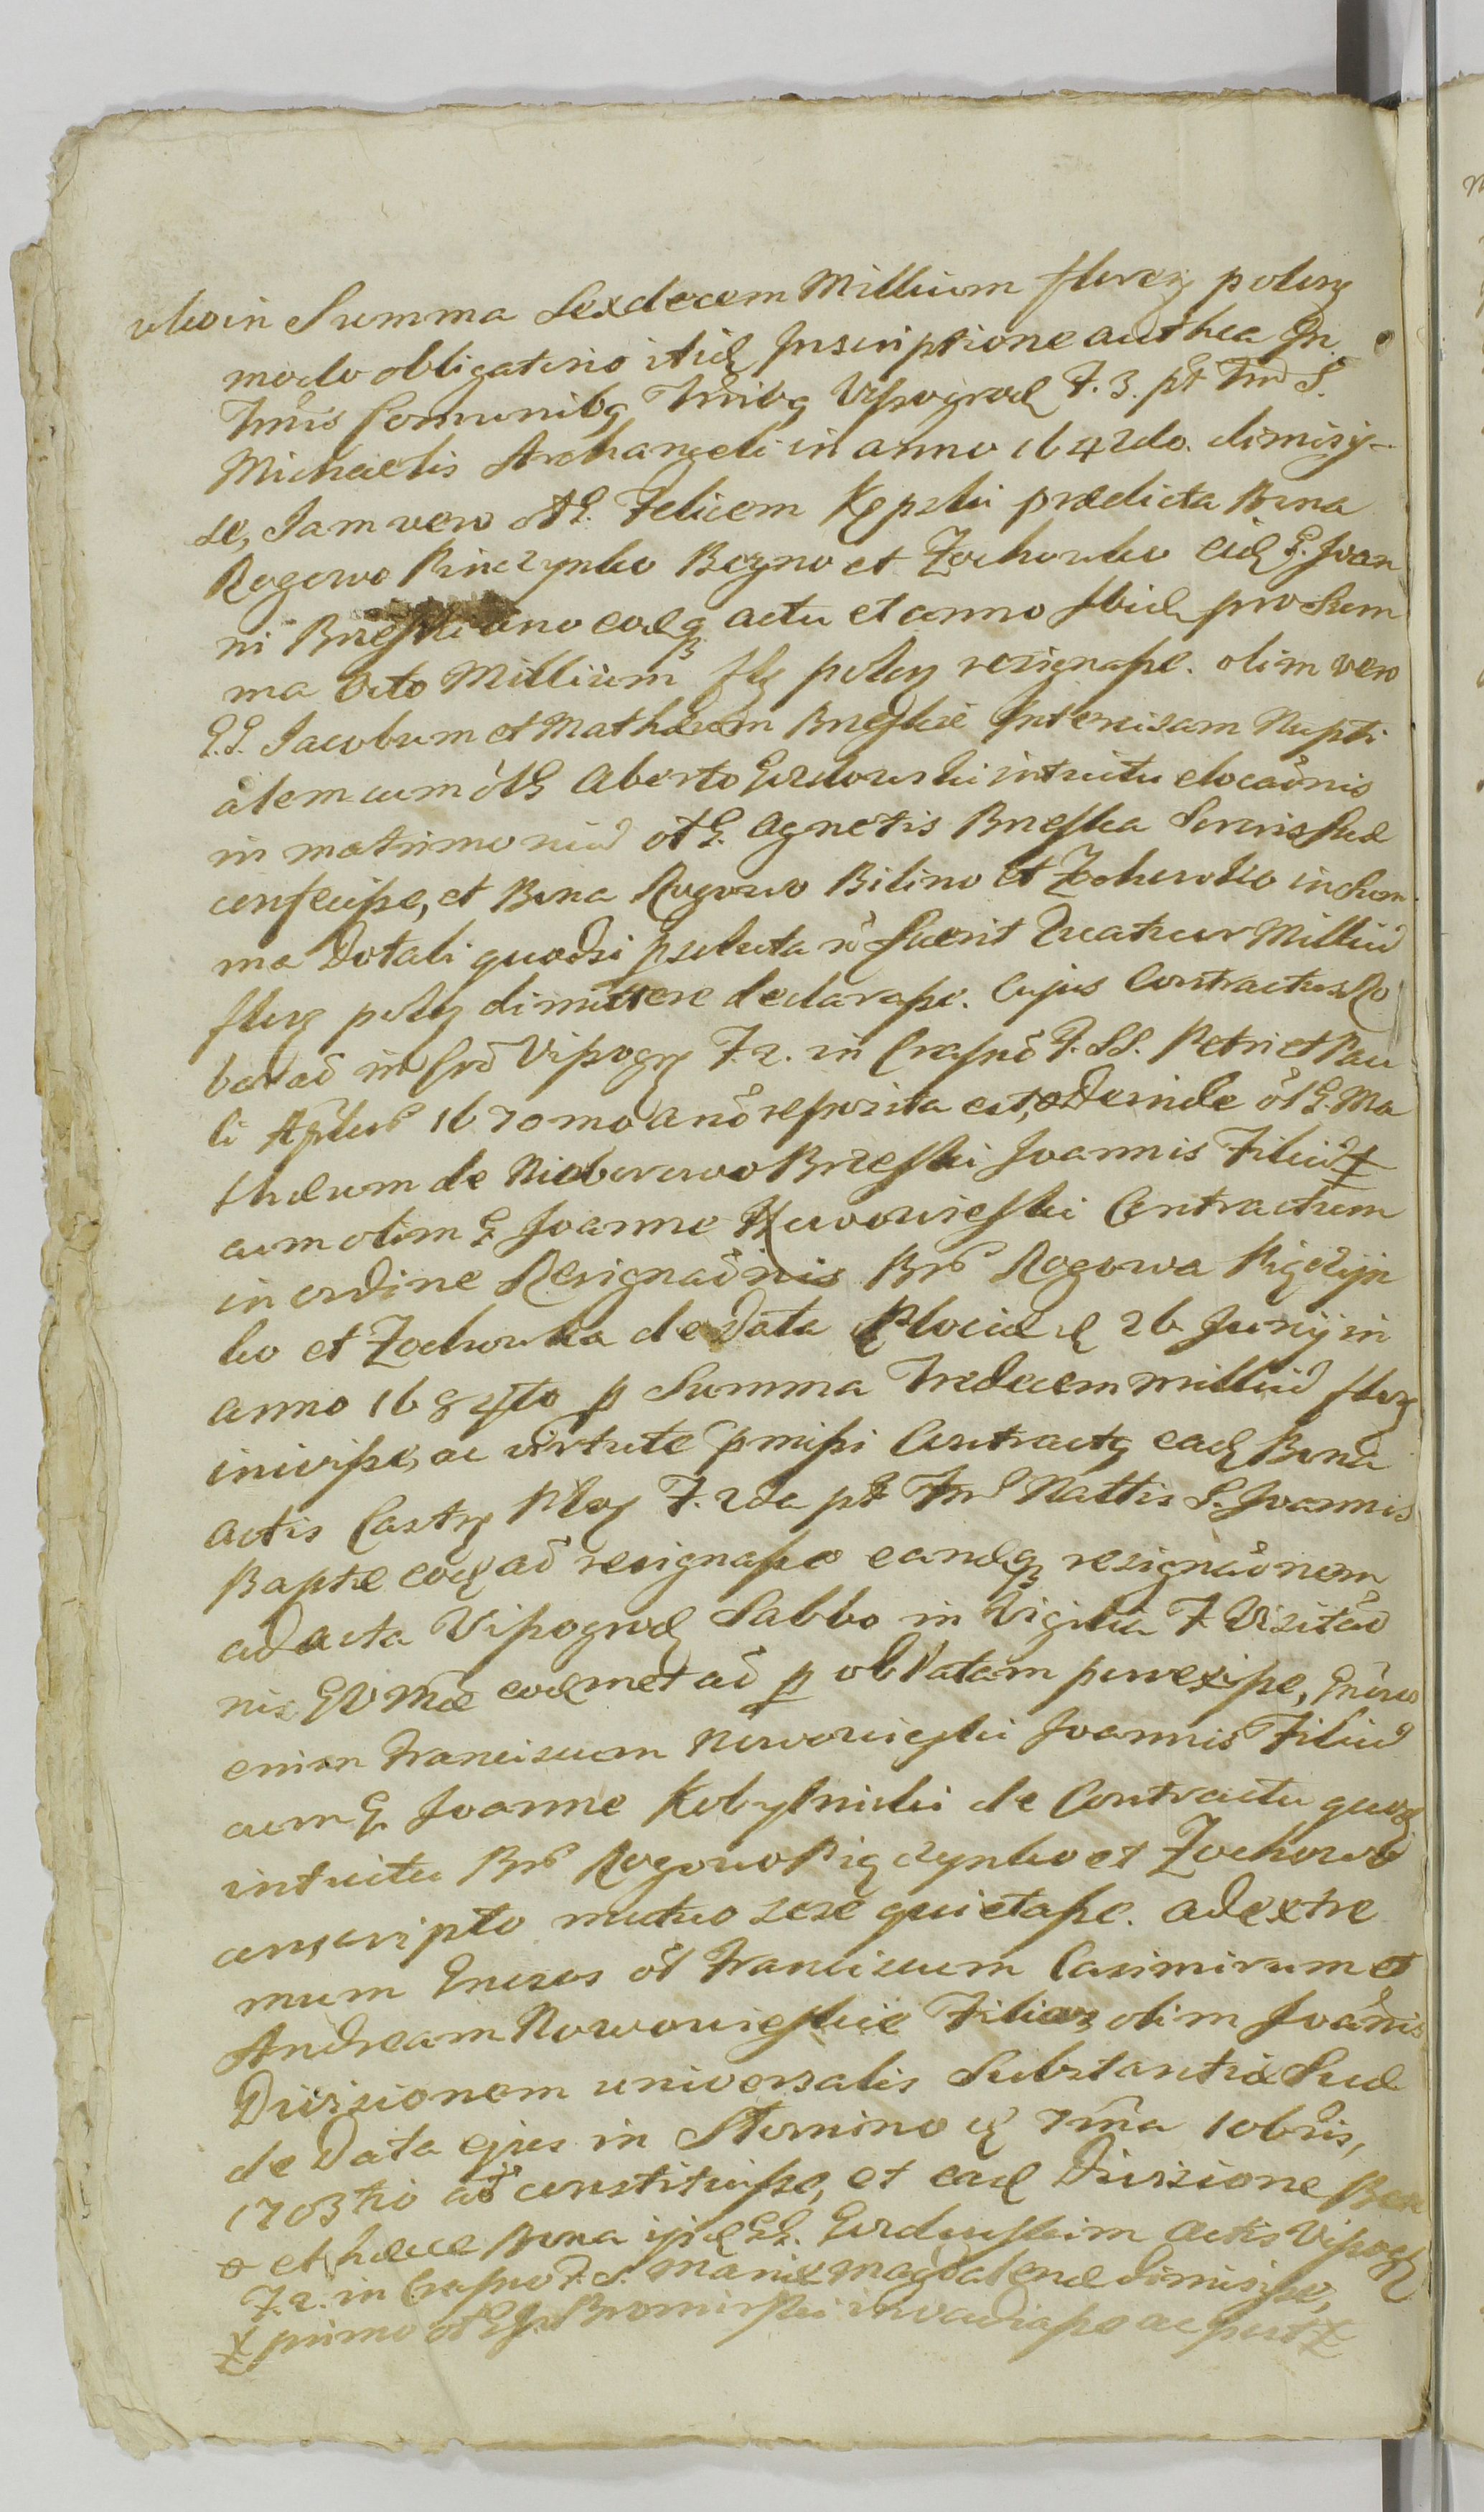 in Summa Sexdecem Millium florz polrz
modo obligatorio itid Inscriptione authca In
Trmis Comunibq Trribq Visogrod F. 3. pt Tm S.
Michaelis Archangeli in anno 1642do. dimisis-
se, Jam vero ol G. Felicem Kępski prædicta Bona
Rogowo Pinczynko Bozyno et Zochowko eid G. Joan
ni Brzeski uno eodq actu et anno ibid pro Sum
ma Octo Millium flg polrz resignasse. olim vero
G.G. Jacobum et Mathæum Breskie Intercisam Nupti
alem cum ol G Alberto Gozdowski intuitu elocaonis
in matrimoniu ol G. Agnetis Breska Sororis suæ
confecisse, et Bona Rogowo Bilino et Zochowko in Sum
ma Dotali quodsi psoluta n fuerit Quatuor Milliu
florz polrz dimittere declarasse. Cujus Contractus Ro
borao in Visogrz F. 2. in Crasno F. SS. Petri et Pau
li Aplor 1670mo ano reposita est, Deinde ol G. Ma
thæum de Nieborowo Brzeski Joannis Filiu
cum olim G Joanne Nowowieski Contractum
in ordine Resignaonis Brs Rogowa Pigczyn
ko et Zochowka de Data Plociæ d 26 Junij in
anno 1684to p Summa Tredecem milliu florz
inivisse, ac virtute pmissi Contractq ead Bona
actis Castrz Ploc F. 2da pt Fm Nattis S. Joannis
Baptæ eod ao resignasse eandq resignaonem
ad acta Visogrod Sabbo in Vigilia F. Visitao
nis G V Mæ eodmet ao p oblatam porrexisse, Gnosu
enim Franciscum Nowowieski Joannis Filiu
cum G. Joanne Kobylnicki de Contractu quoq
intuitu Brs Rogowo Pigczynko et Zochowo
conscripto mutuo sese quietasse. ad extre
mum Gnosos ol Franciscum Casimirum et
Andream Nowowieskie Filios olim Joanis
Divisionem universalis Substantiæ Suæ
de Data ejus in Sturmino d 7ma 10bris,
1703tio ao constituisse, et ead Divisione Bon
et hæcce Bona ijsd GG. Gozdowskim actis Visogr
F. 2. in Crasno F. S. Mariæ Magdalenæ dimisisse,
primo ol G Bromirski invadiasse ac post